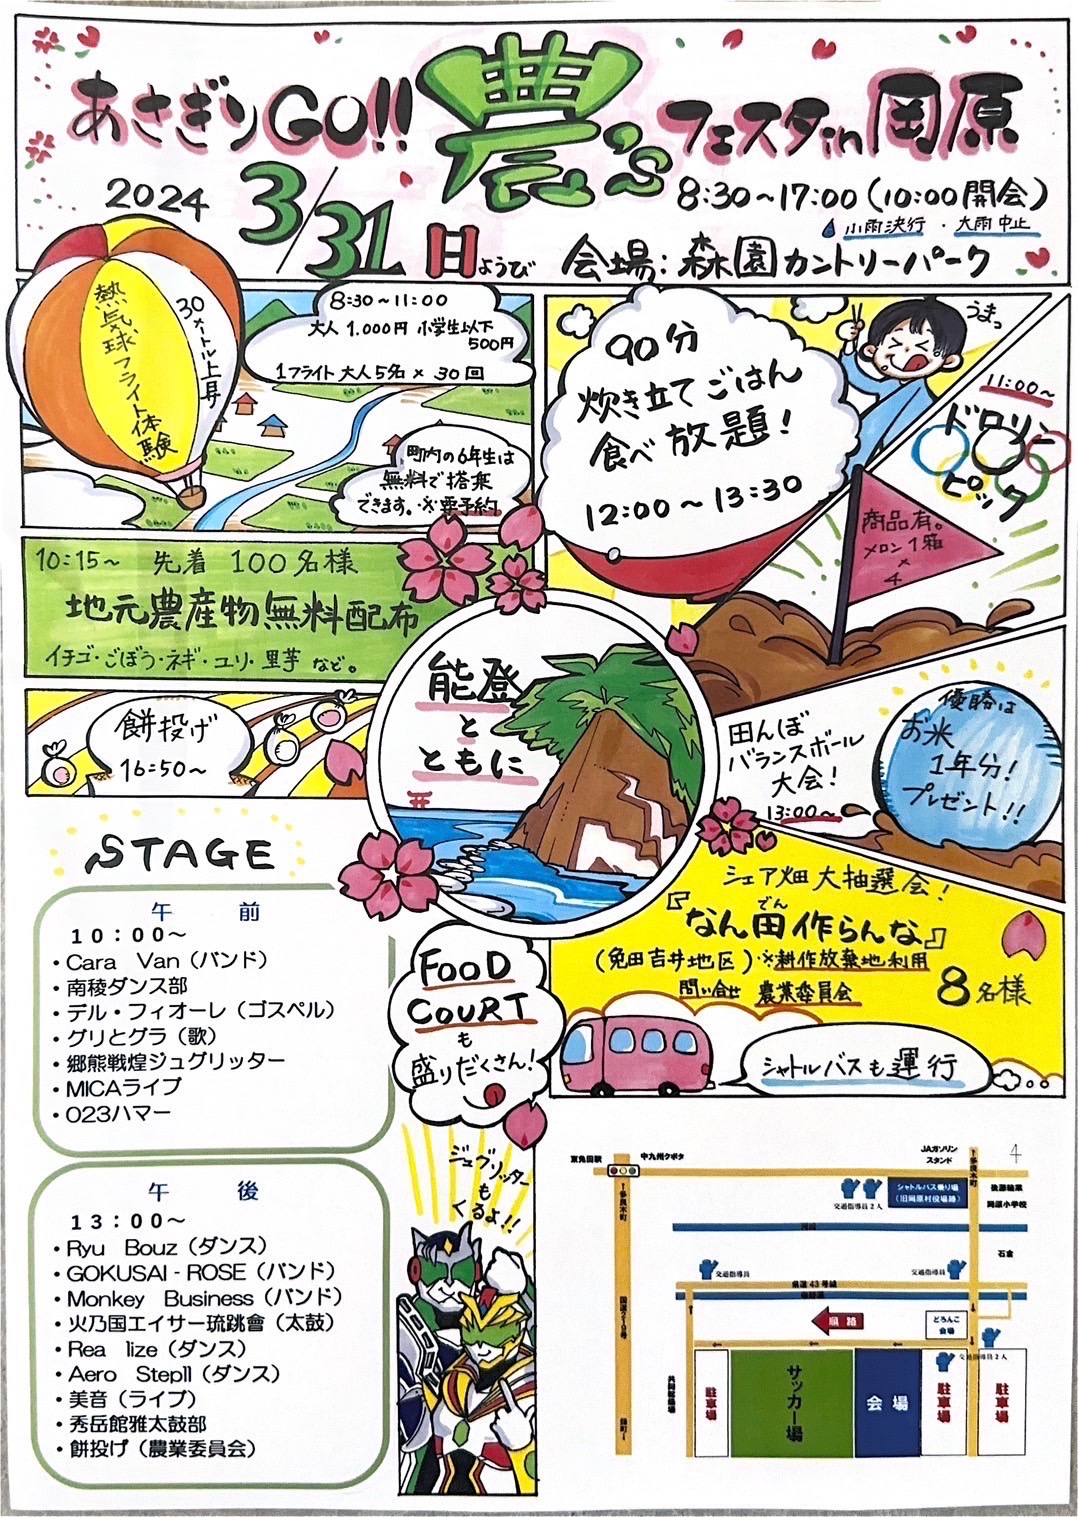 あさぎりGO!! 農's フェスタin岡原
2024 3/31 日ようび
8:30〜17:00(10:00開会)
小雨決行・大雨中止
会場:森園カントリーパーク
熱気球フライト体験
30メートル上昇
8:30〜11:00
大人 1.000円 小学生以下
500円
1フライト 大人5名×30回
町内の6年生は
無料で搭乗
できます。※要予約
90分
炊き立てごはん
食べ放題!
12:00〜13:30
うまっ
11:00〜
ドロリン
ピック
商品有。
メロン1箱
×
4
10:15〜 先着 100名様
地元農産物無料配布
イチゴ・ごぼう・ネギ・ユリ・里芋 など。
餅投げ
16:50〜
能登
と
ともに
田んぼ
バランスボール
大会!
13:00〜
優勝は
お米
1年分!
プレゼント!!
シェア畑 大抽選会!
『なん田作らんな』
でん
(免田吉井地区)※耕作放棄地利用
問い合せ 農業委員会
8名様
シャトルバスも運行
FOOD
COURT
も
盛りだくさん!
STAGE
午 前
10:00〜
・Cara Van(バンド)
・南稜ダンス部
・デル・フィオーレ(ゴスペル)
・グリとグラ(歌)
・郷熊戦煌ジュグリッター
・MICAライブ
・023ハマー
午 後
13:00〜
・Ryu Bouz(ダンス)
・GOKUSAI-ROSE(バンド)
・Monkey Business(バンド)
・火乃国エイサー琉跳會(太鼓)
・Rea lize(ダンス)
・Aero Stepll(ダンス)
・美音(ライブ)
・秀岳館雅太鼓部
・餅投げ(農業委員会)
ジュグリッター
も
くるよ!!
東免田駅
中九州クボタ
JAガソリン
スタンド
4
↑多良木町
↑多良木町
シャトルバス乗り場
(旧岡原村役場跡)
交通指導員2人
岡原小学校
石倉
交通指導員
交通指導員
県道43号線
国道219号
順路
どろんこ
会場
交通指導員2人
駐車場
サッカー場
会場
駐車場
駐車場